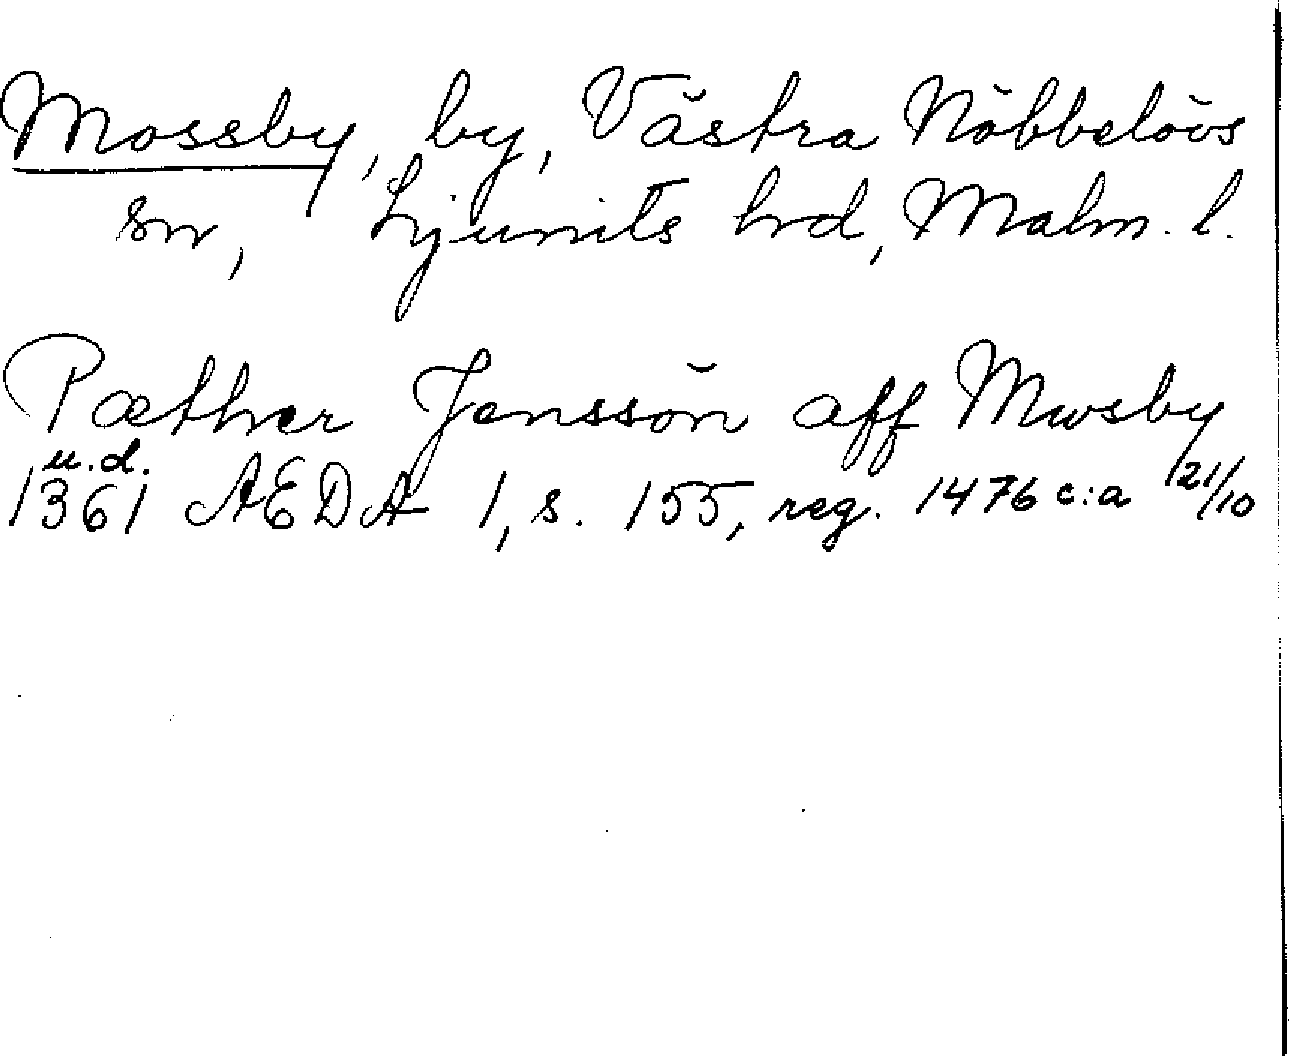 Mossby, by, Västra Nöbbelövs
sn, Ljunits hrd, Malm. l.
Pæther Jenssön aff Mwsby
u.d.
1361 AEDA 1, s. 155, reg. 1476 c:a 21/10